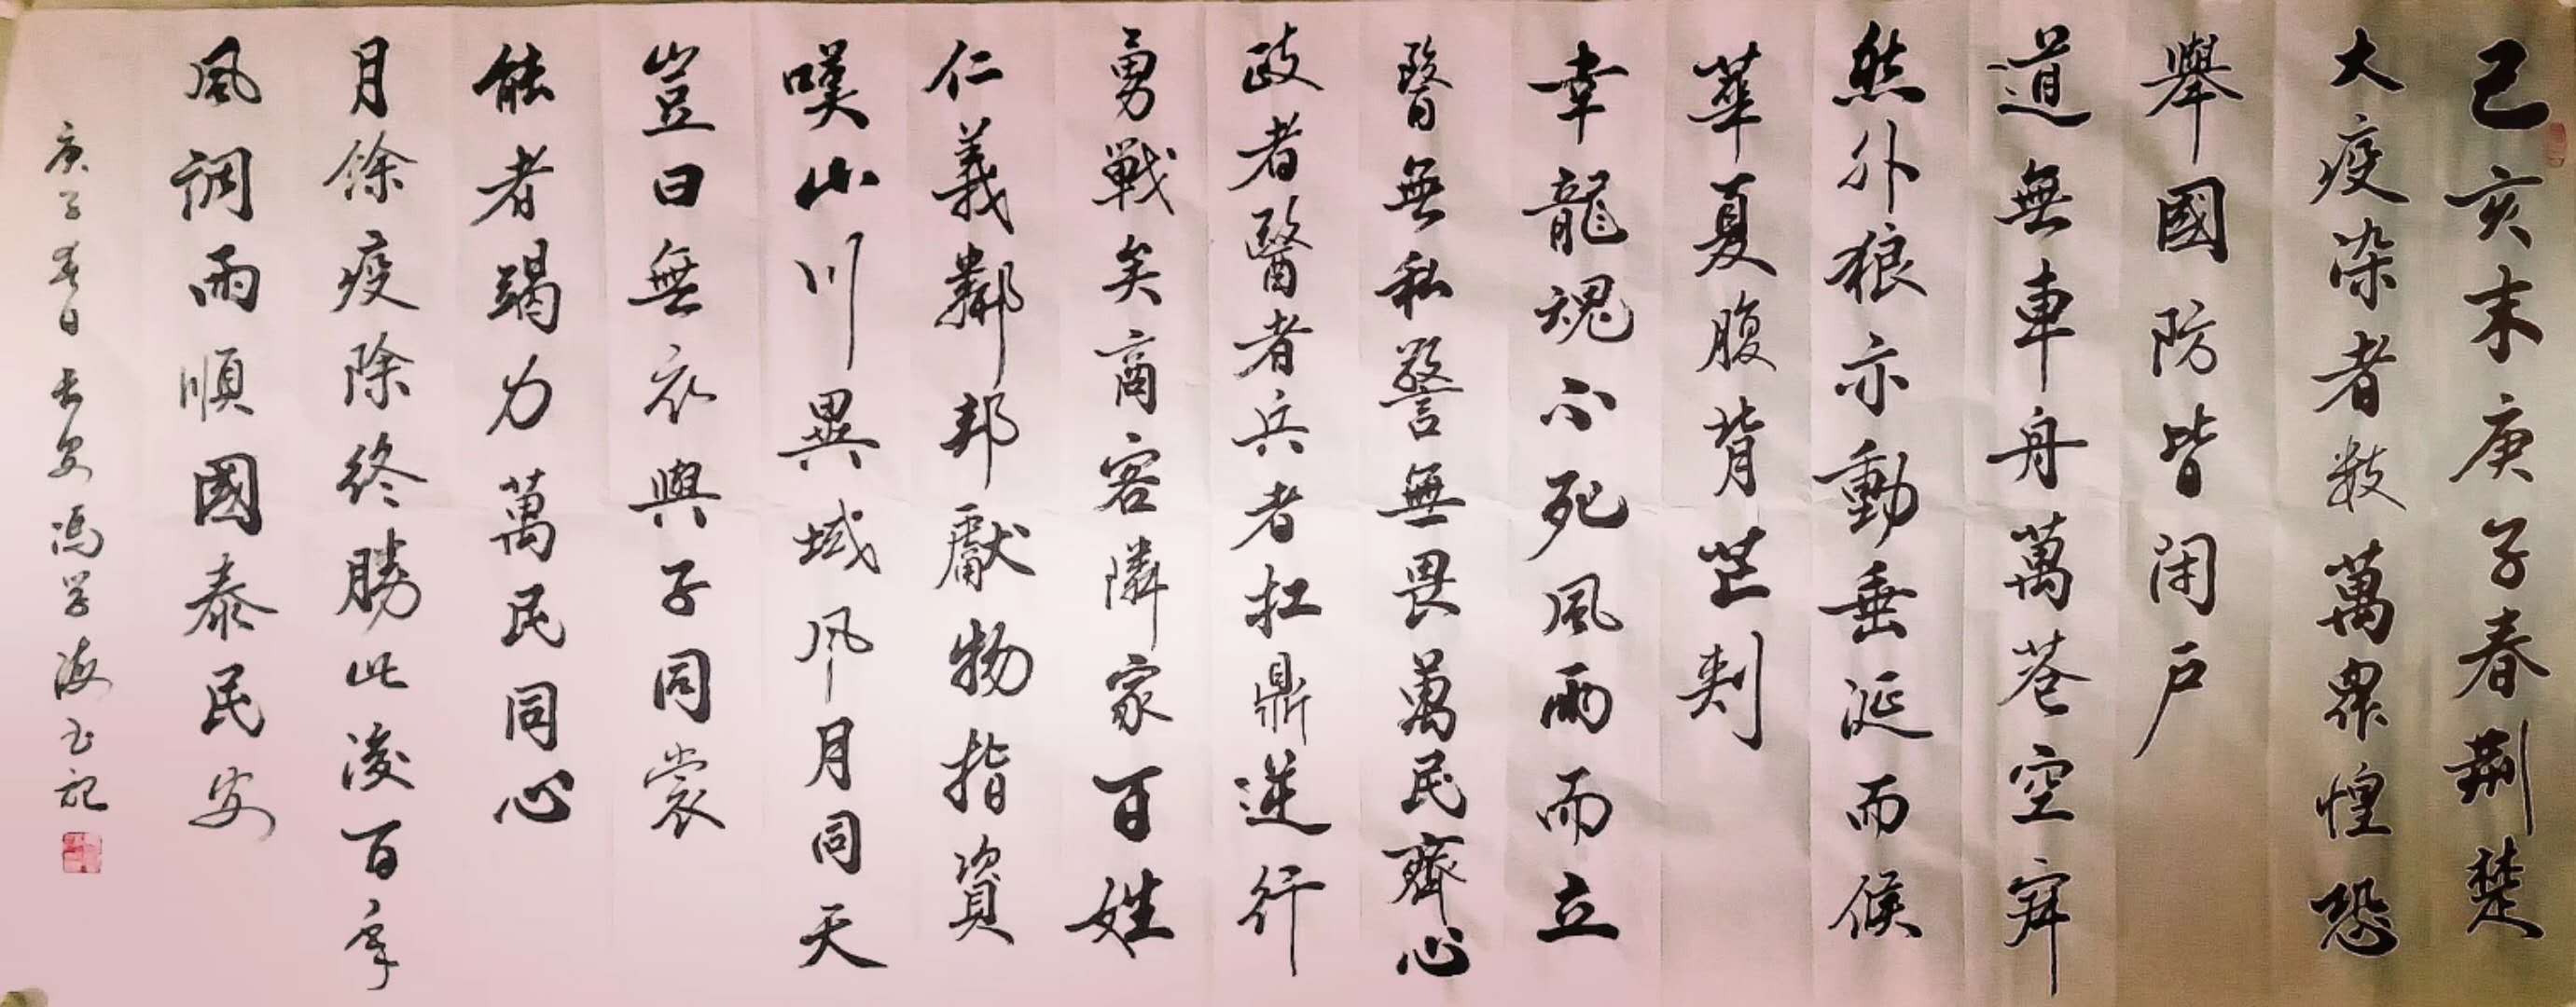 己亥末庚子春荆楚
大疫染者数萬眾惶恐
舉國防皆闭户
道無車舟萬巷空寂
然外狼亦動垂涎而候
華夏腹背芒刺
幸龍魂不死風雨而立
醫無私警無畏萬民齊心
政者醫者兵者扛鼎逆行
勇戰矣商客隣家百姓
仁義鄰邦獻物指資
嘆山川異域风月同天
豈曰無衣與子同裳
能者竭力萬民同心
月餘疫除終勝此凌百年
風調雨順國泰民安
庚子春日長安馮学海书記